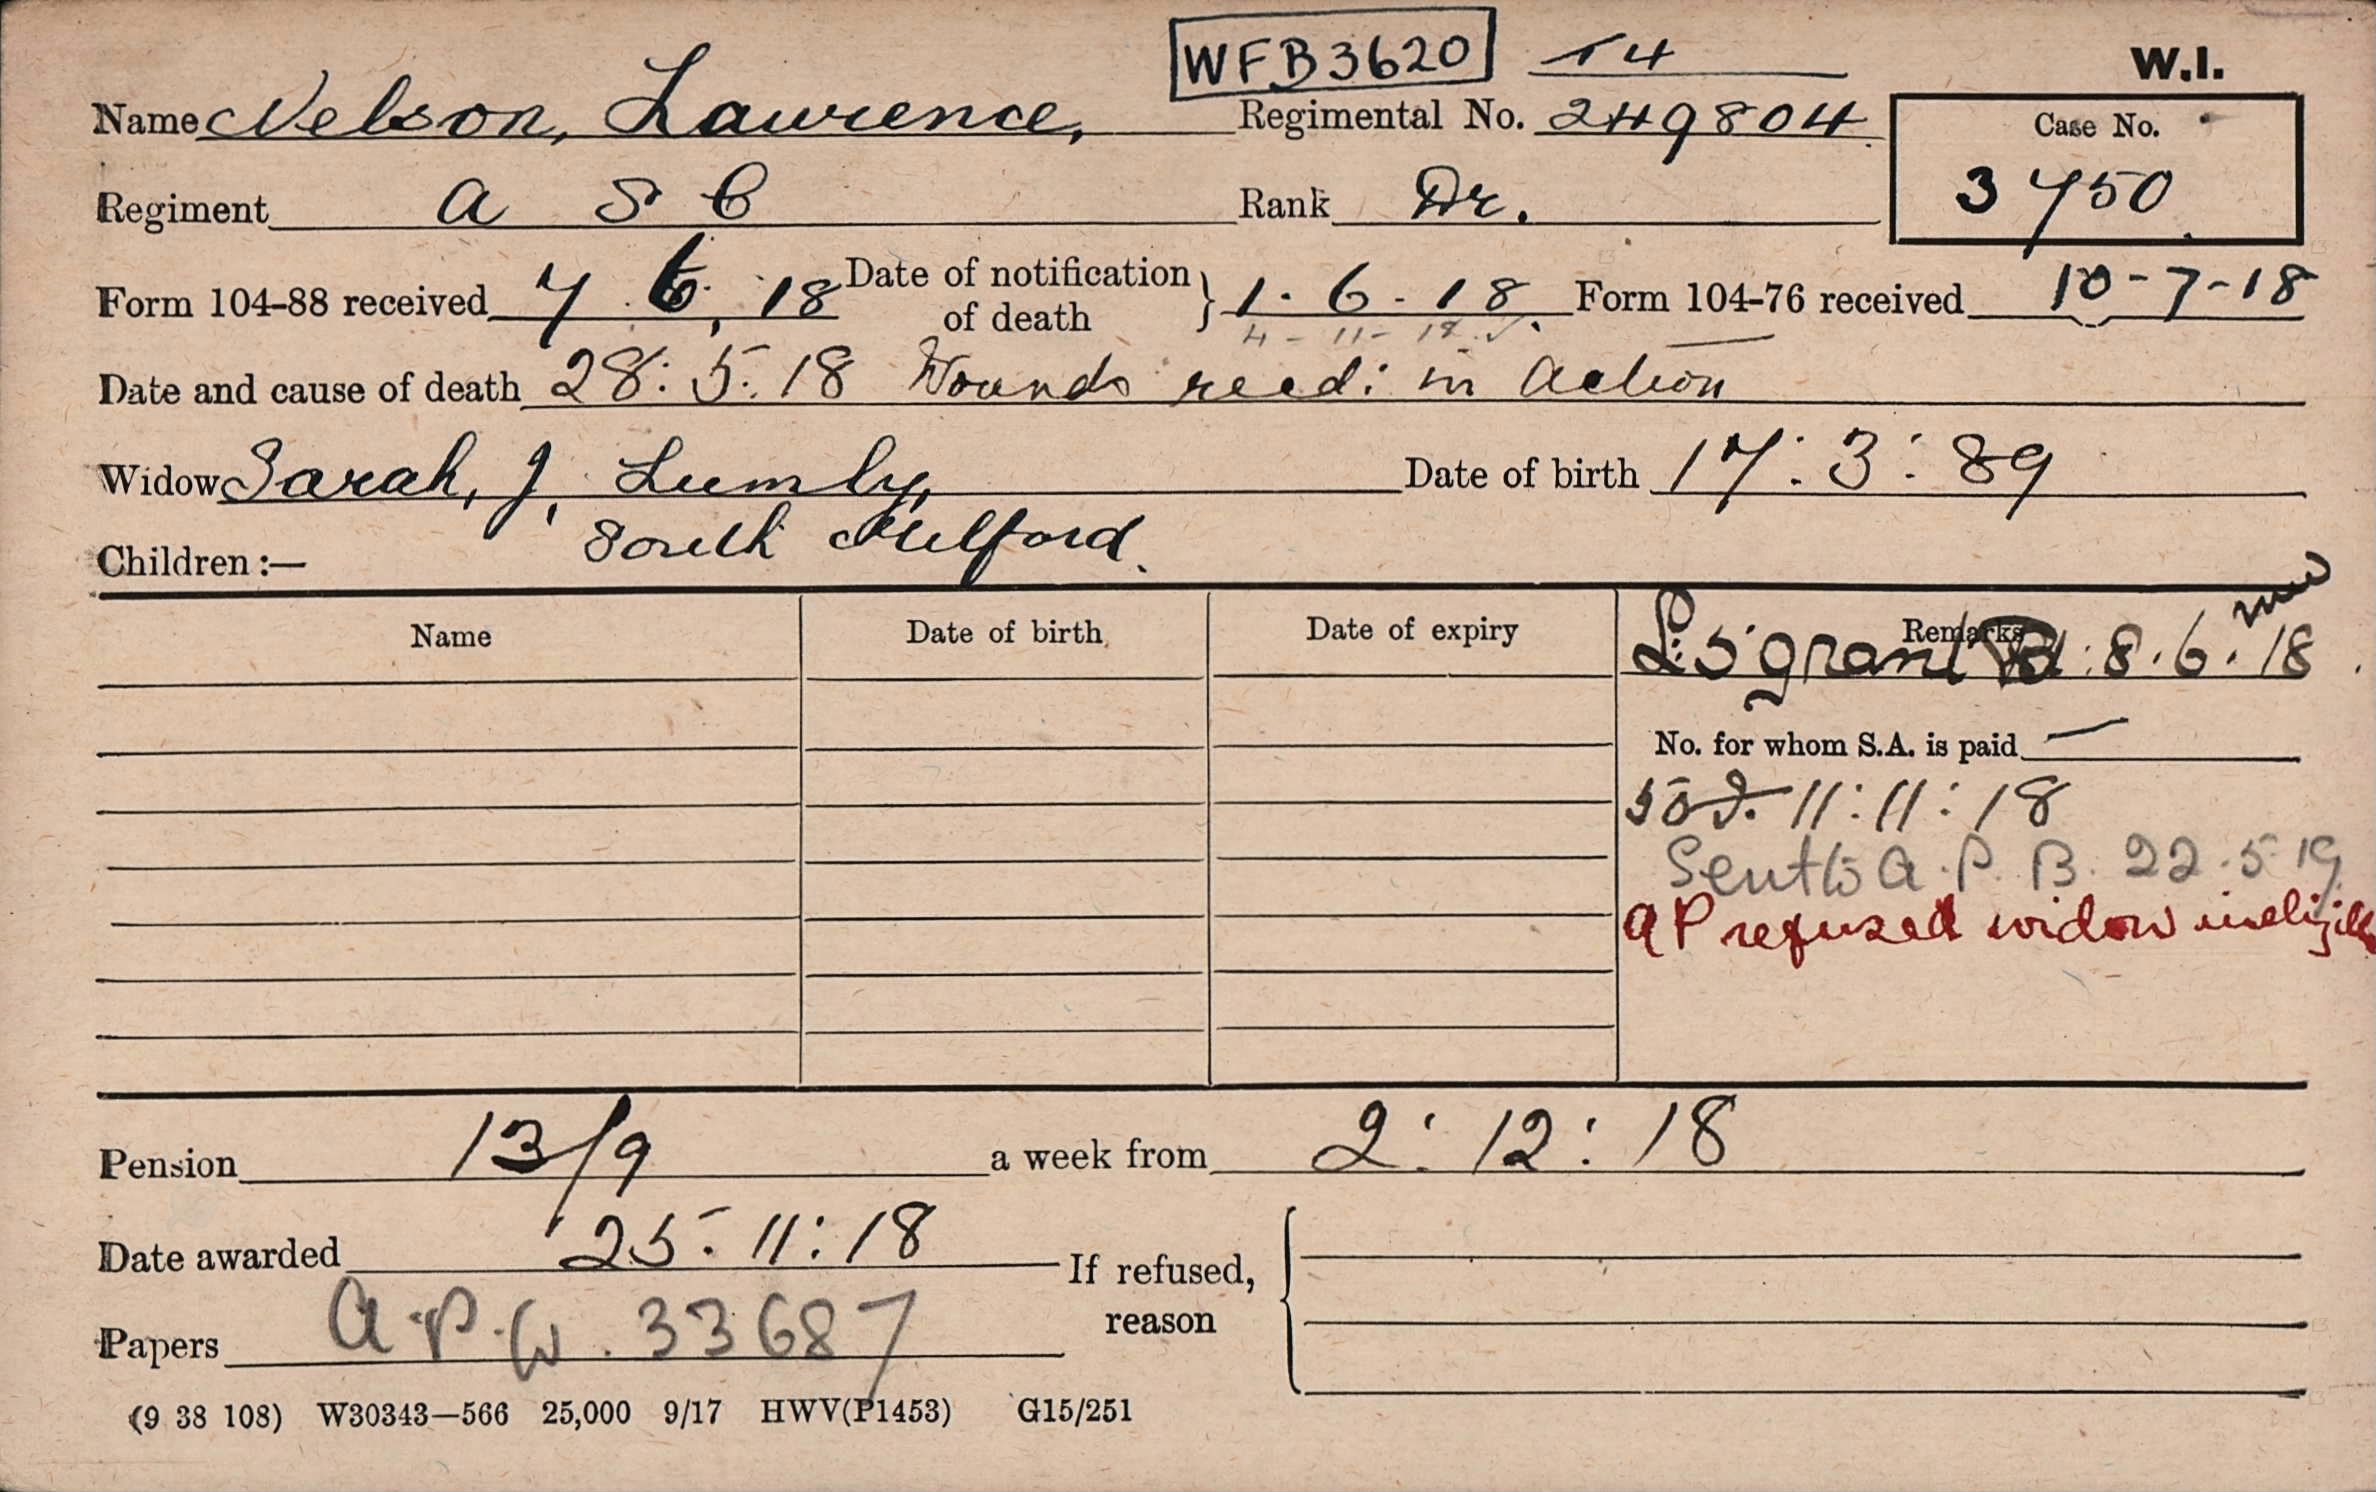 WFB3620 T4 W.I.
Name Nelson, Lawrence, Regimental No. 249804 Case No.
3750
Regiment A S C Rank Dr.
Form 104-88 received 7.6.18 Date of notification of death } 1.6.18. Form 104-76 received 10-7-18
4-11-18
Date and cause of death 28:5:18 Wounds recd: in Action
Widow Sarah, J, Lumby, Date of birth 17:3:89
South Milford.
Children :—
Name Date of birth Date of expiry Remarks
£5 grant Pd: 8.6.18
No. for whom S.A. is paid —
11:11:18
Sent to A.P.B. 22.5.19
AP refused widow ineligible
Pension 13/9 a week from 2:12:18
Date awarded 25:11:18 If refused, reason
Papers A.P.W. 33687
(9 38 108) W30343—566 25,000 9/17 HWV(P1453) G15/251